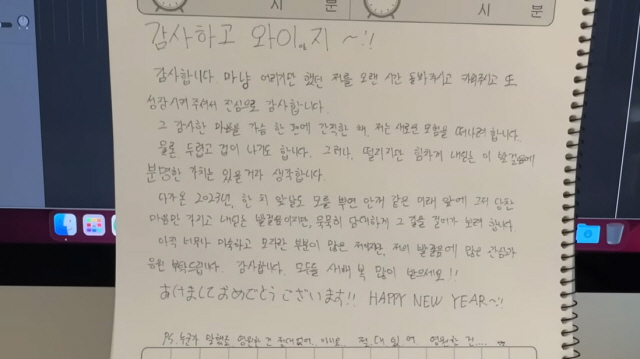 시 분 시 분
감사하고 와이지 ~!!
감사합니다. 마냥 어리기만 했던 저를 오랜 시간 돌봐주시고 키워주시고 또
성장시켜 주셔서 진심으로 감사합니다.
그 감사한 마음을 가슴 한 켠에 간직한 채, 저는 새로운 모험을 떠나려 합니다.
물론 두렵고 겁이 나기도 합니다. 그러나, 떨리지만 힘차게 내딛는 이 발걸음에
분명한 가치는 있을거라 생각합니다.
다가온 2023년, 한 치 앞날도 모를 뿌연 안개 같은 미래 앞에 그저 담담한
마음만 가지고 내딛는 발걸음이지만, 묵묵히 담대하게 그 길을 걸어가 보려 합니다.
아직 너무나 미숙하고 모자란 부분이 많은 저이지만, 저의 발걸음에 많은 관심과
응원 부탁드립니다. 감사합니다. 모두들 새해 복 많이 받으세요!!
あけましておめでとうございます!! HAPPY NEW YEAR~!
P.S. 누군가 말했죠 영원한 건 절대 없어. 절대 있어 영원한 건....